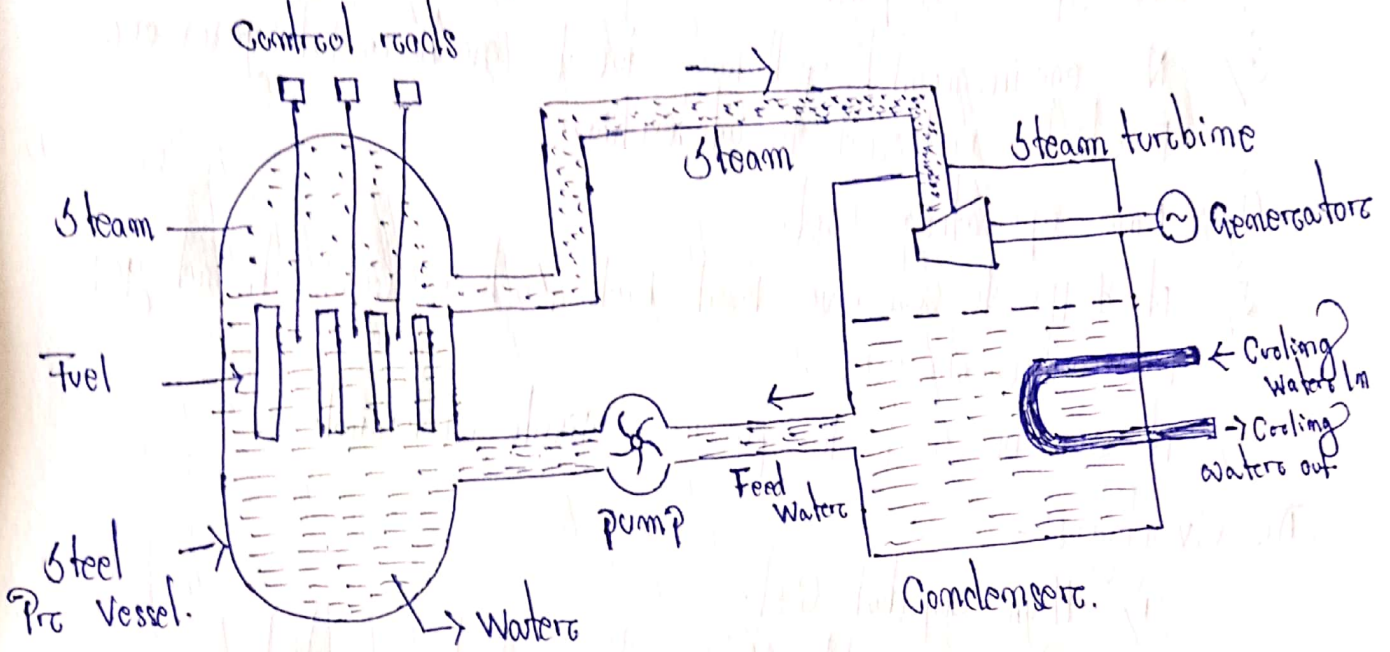 Control rods
Steam
Steam
Steam turbine
~
Generator
Fuel
← Cooling
Water In
→ Cooling
water out
Feed
Water
Pump
Steel
Pr Vessel.
Water
Condenser.